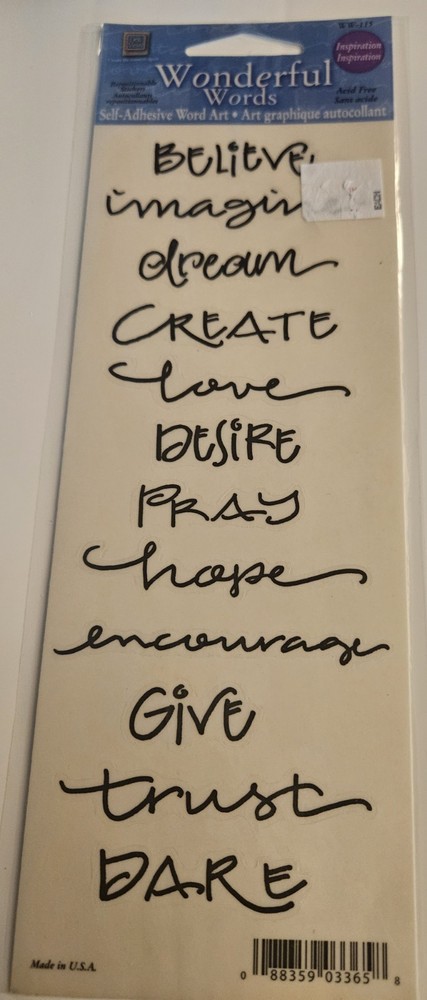 Inspiration
Inspiration
Wonderful
Words
Acid Free
Sans acide
Self-Adhesive Word Art • Art graphique autocollant
BELiEVE
imagin
dream
CREATE
love
DESiRE
PRAY
hope
encourage
GiVE
trust
DARE
Made in U.S.A.
0 88359 03365 8